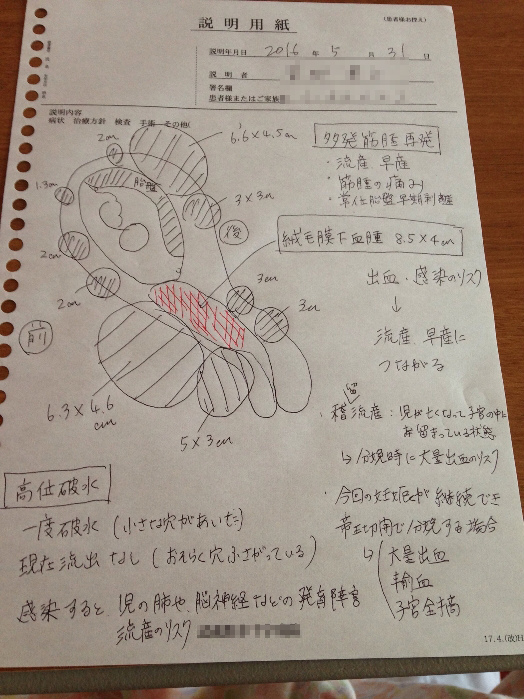 説明用紙
(患者様お控え)
説明年月日 2016 年 5 月 31 日
説明者
署名欄
患者様またはご家族
説明内容
病状 治療方針 検査 手術 その他(
6.6×4.5cm
2cm
胎盤
1.3cm
3×3cm
後
2cm
2cm
3cm
3cm
前
6.3×4.6cm
5×3cm
多発筋腫再発
・流産 早産
・筋腫の痛み
・常位胎盤早期剥離
絨毛膜下血腫 8.5×4cm
出血・感染のリスク
↓
流産 早産に
つながる
・稽留流産:児が亡くなって子宮の中に
留まっている状態
↳分娩時に大量出血のリスク
・今回の妊娠が継続でき
帝王切開で分娩する場合
↳ 大量出血
輸血
子宮全摘
高位破水
一度破水(小さな穴があいた)
現在流出なし(おそらく穴ふさがっている)
感染すると、児の肺や、脳神経などの発育障害
流産のリスク
17.4.(改)